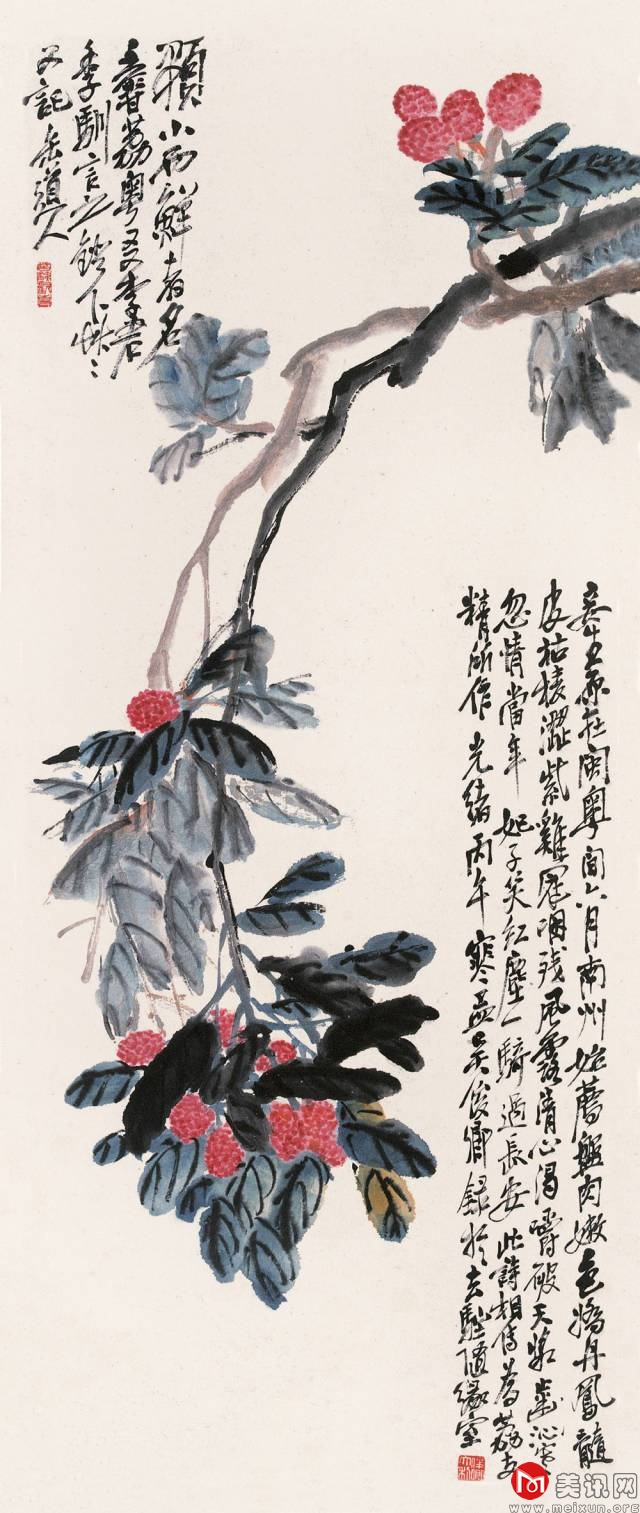 妾生原在閩粵間六月南州始薦盤肉嫩色嬌丹鳳髓
皮枯棱澀紫雞冠咽殘風露清心渴嚼破天漿齒沁寒
忽情當年妃子笑紅塵一騎過長安此詩相傳為荔支
精所作光緒丙午寒孟吳俊卿錄於去駐隨緣室
顆小而鮮者名
荔粵友李君
季馴言之
又記缶道人
美讯网
www.meixun.org